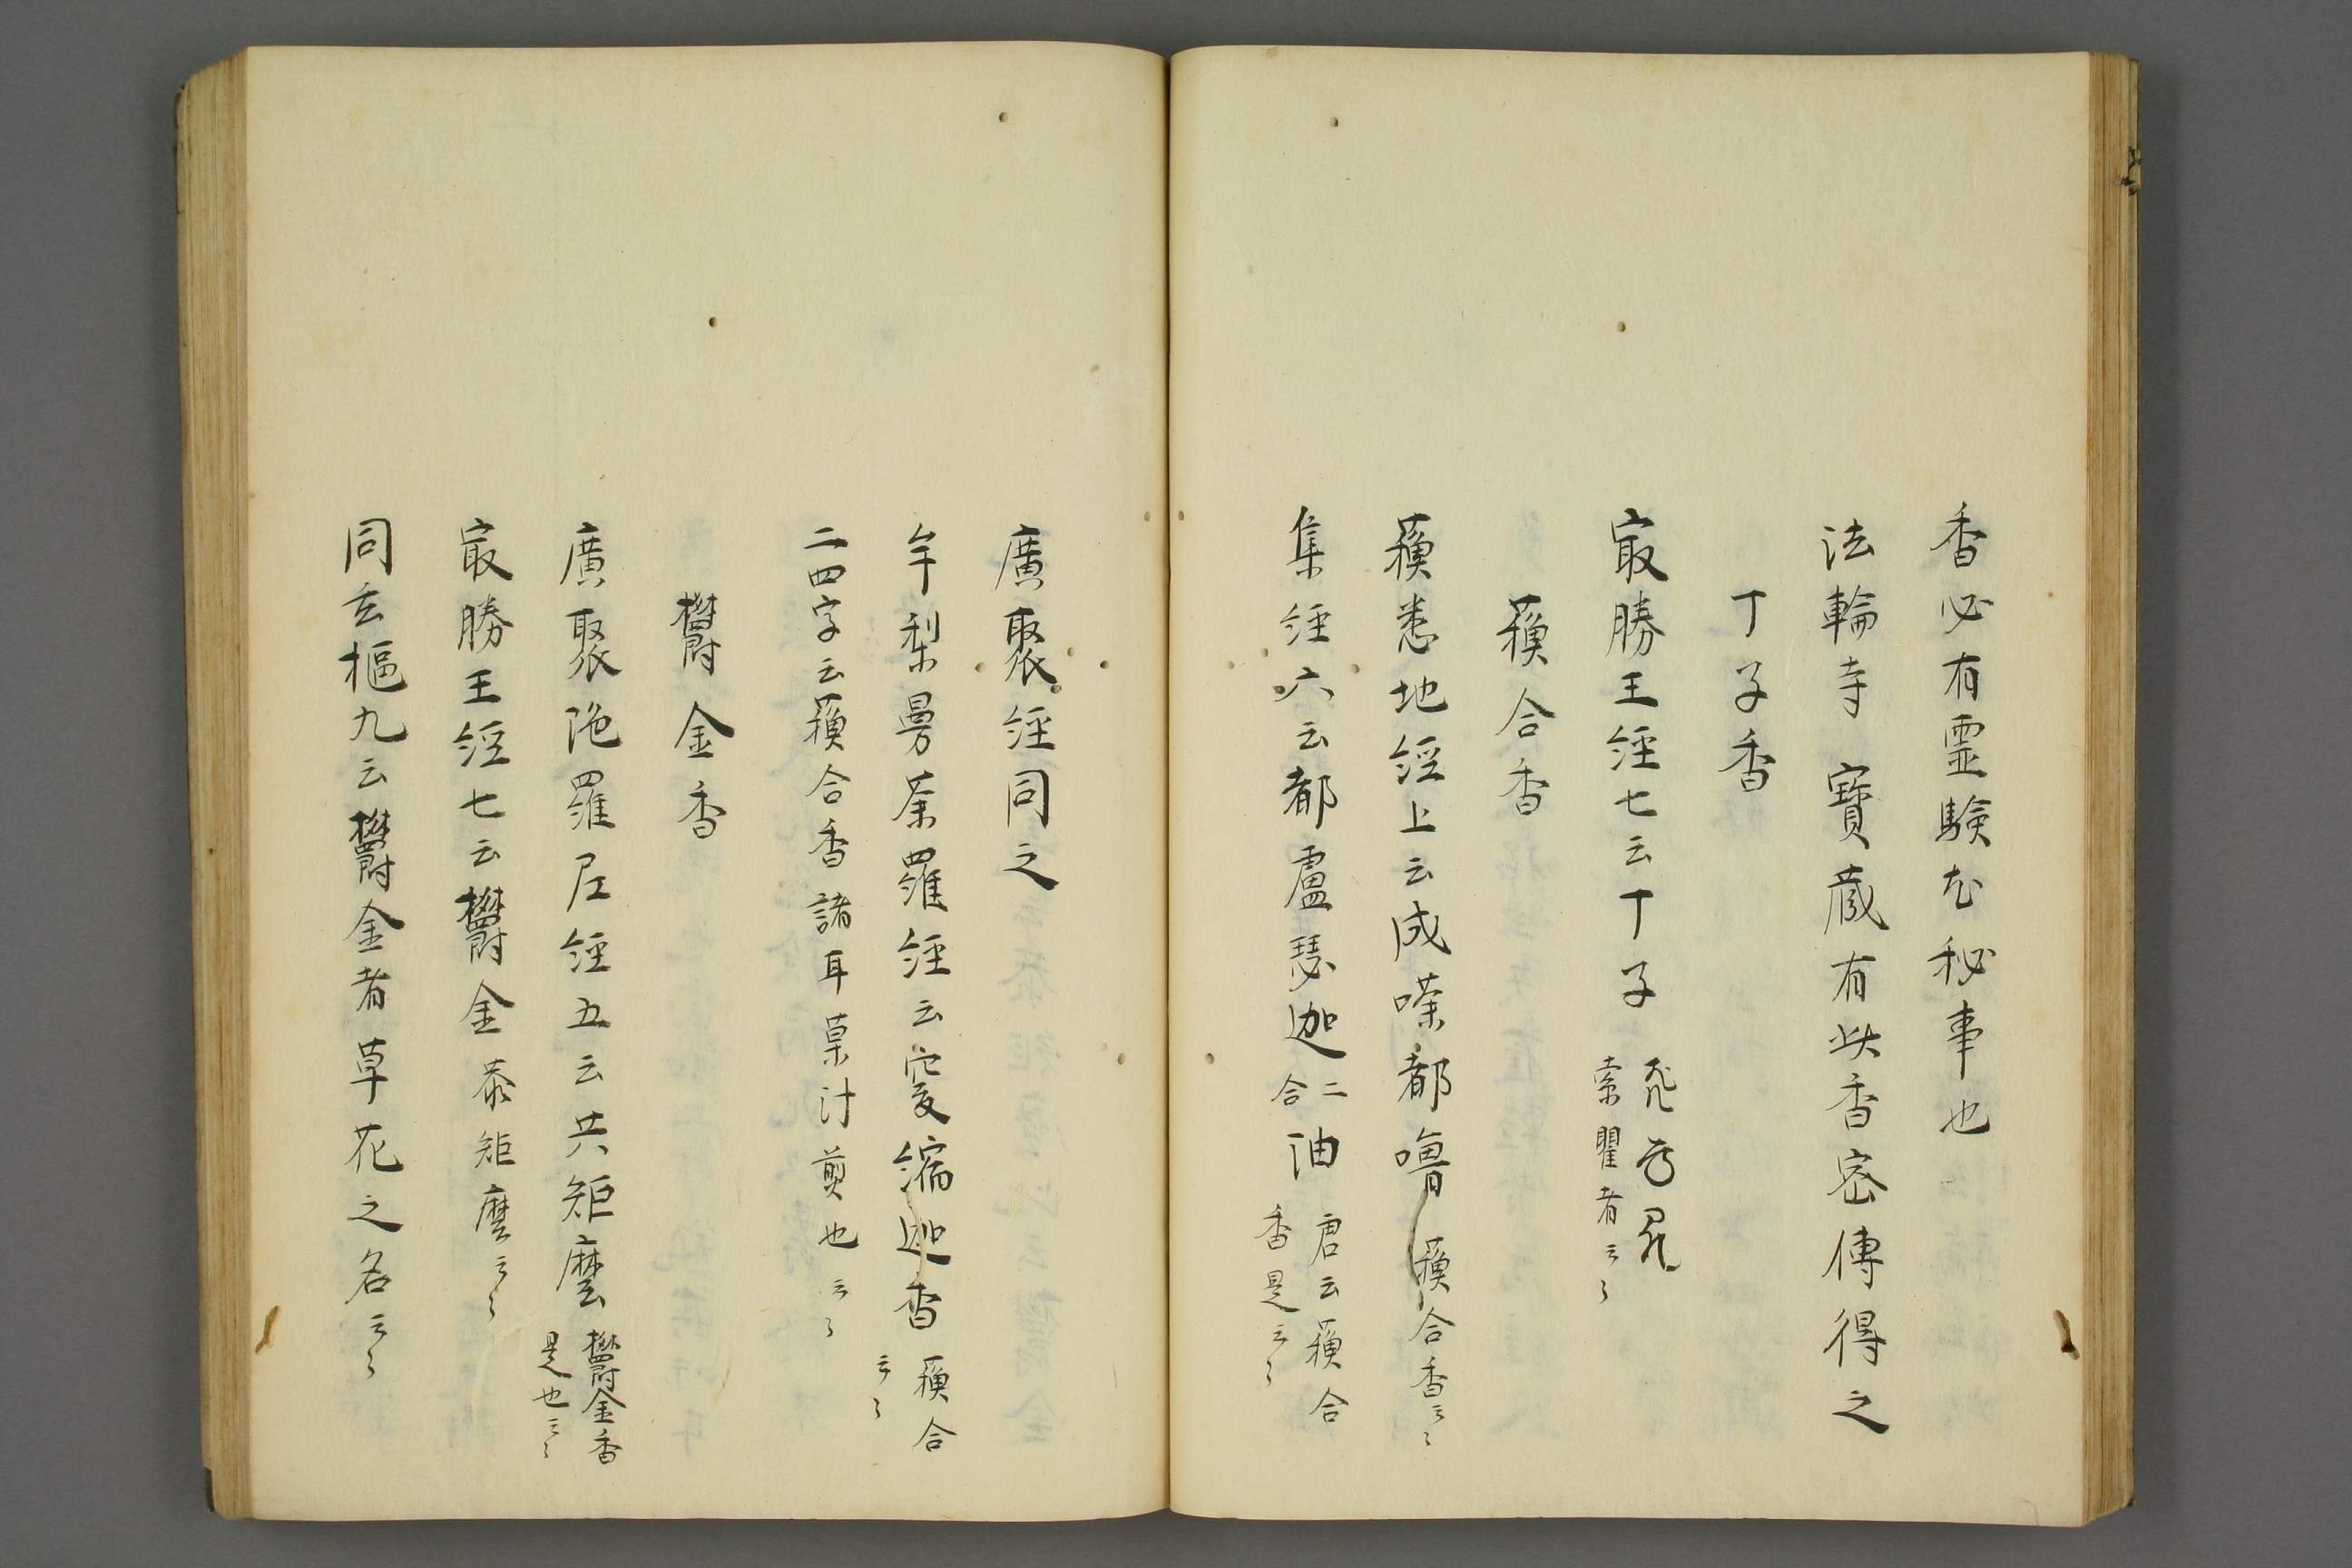 香必有霊驗尤秘事也
法輪寺寶蔵有此香密傳得之
丁子香
最勝王経七云丁子
索瞿者云々
蘓合香
蘓悉地経上云咸𠿘都嚕 蘓合香云々
集経六云都盧瑟迦 二合 油 唐云蘓合
香是云々
廣聚経同之
牟梨曼荼羅経云窣 迦香 蘓合
云々
二四字云蘓合香諸耳草汁煎也云々
欝金香
廣聚陁羅尼経五云共矩麼 欝金香
是也云々
最勝王経七云欝金 恭矩麼云々
同玄樞九云欝金者草花之名云々